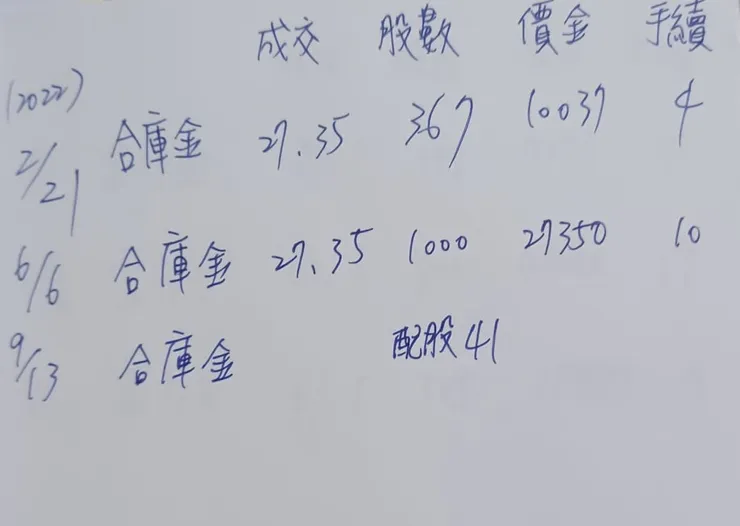 成交 股數 價金 手續
(2022)
2/21 合庫金 27.35 367 10037 4
6/6 合庫金 27.35 1000 27350 10
9/13 合庫金 配股41